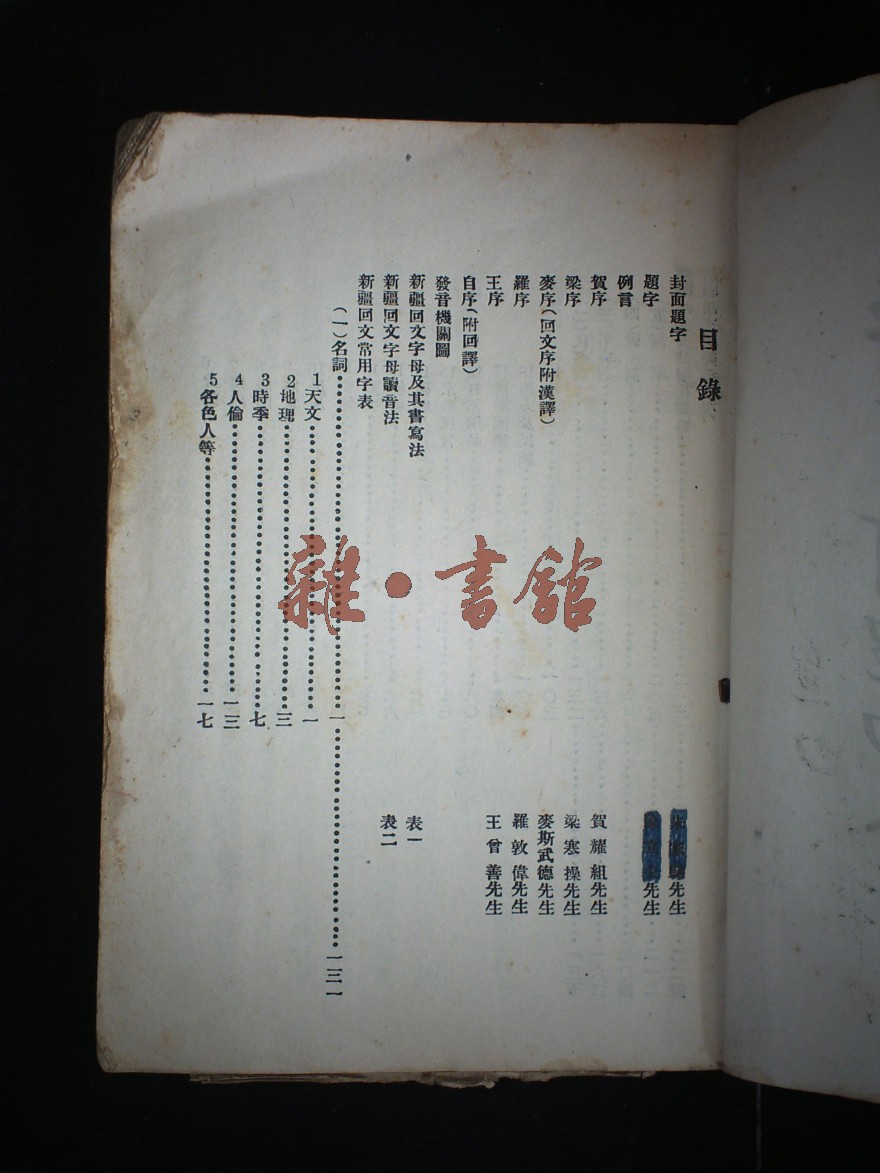 目錄
封面題字 先生
題字 先生
例言
賀序 賀耀組先生
梁序 梁寒操先生
麥序(回文序附漢譯) 麥斯武德先生
羅序 羅敦偉先生
王序 王曾善先生
自序(附回譯)
發音機關圖
新疆回文字母及其書寫法 表一
新疆回文字母讀音法 表二
新疆回文常用字表
(一)名詞……一……一三一
1天文……一
2地理……三
3時季……七
4人倫……一三
5各色人等……一七
雜·書館